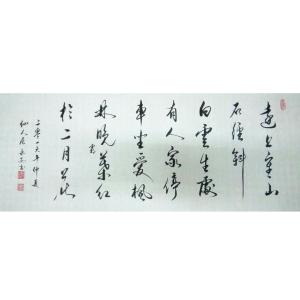 遠上寒山
石徑斜
白雲生處
有人家停
車坐愛楓
林晚霜葉紅
於二月花
二零一六年仲夏